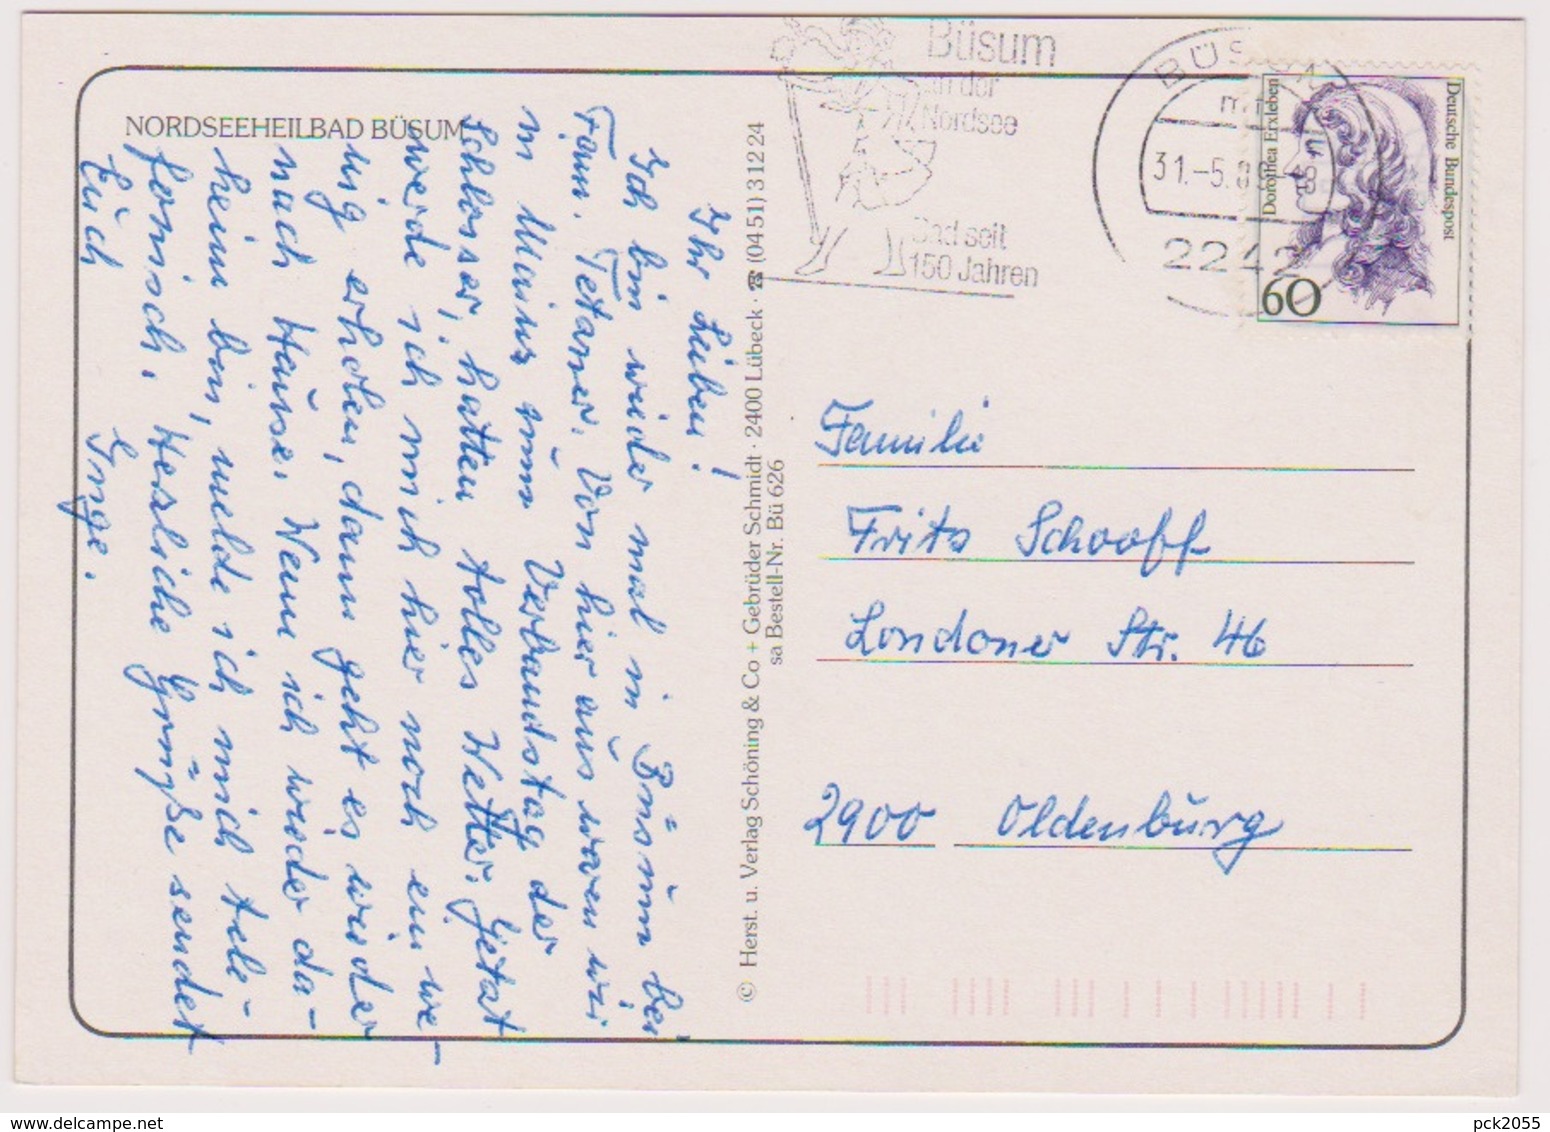 NORDSEEHEILBAD BÜSUM
Ihr Lieben!
Ich bin wieder mal in Büsum bei
Fam. Tetzner. Von hier aus waren wir
in Mainz zum Verbandstag der
Schlosser, hatten tolles Wetter. Jetzt
werde ich mich hier noch ein we-
nig erholen, dann geht es wieder
nach Hause. Wenn ich wieder da-
heim bin, melde ich mich tele-
fonisch. Herzliche Grüße sendet
Euch Inge.
© Herst. u. Verlag Schöning & Co + Gebrüder Schmidt · 2400 Lübeck · ☎ (04 51) 3 12 24
sa Bestell-Nr. Bü 626
Büsum
an der
Nordsee
Bad seit
150 Jahren
BÜSUM
31.-5.
2242
Dorothea Erxleben
Deutsche Bundespost
60
Familie
Fritz Schooff
Londoner Str. 46
2900 Oldenburg
pck2055